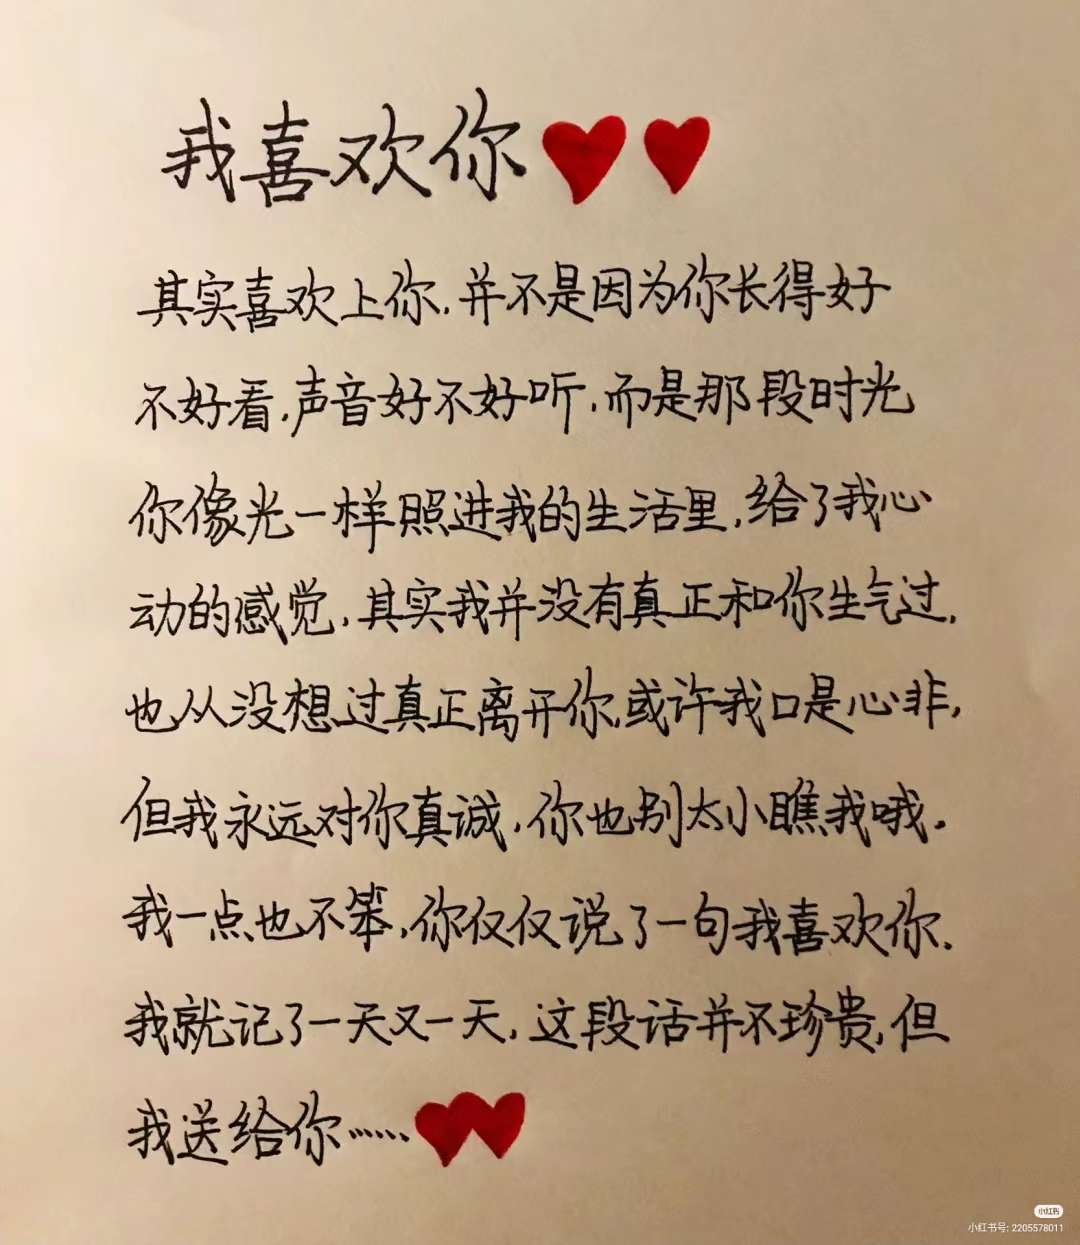 我喜欢你
其实喜欢上你,并不是因为你长得好
不好看,声音好不好听,而是那段时光
你像光一样照进我的生活里,给了我心
动的感觉,其实我并没有真正和你生气过,
也从没想过真正离开你,或许我口是心非,
但我永远对你真诚,你也别太小瞧我哦.
我一点也不笨,你仅仅说了一句我喜欢你.
我就记了一天又一天,这段话并不珍贵,但
我送给你……
小红书
小红书号: 2205578011